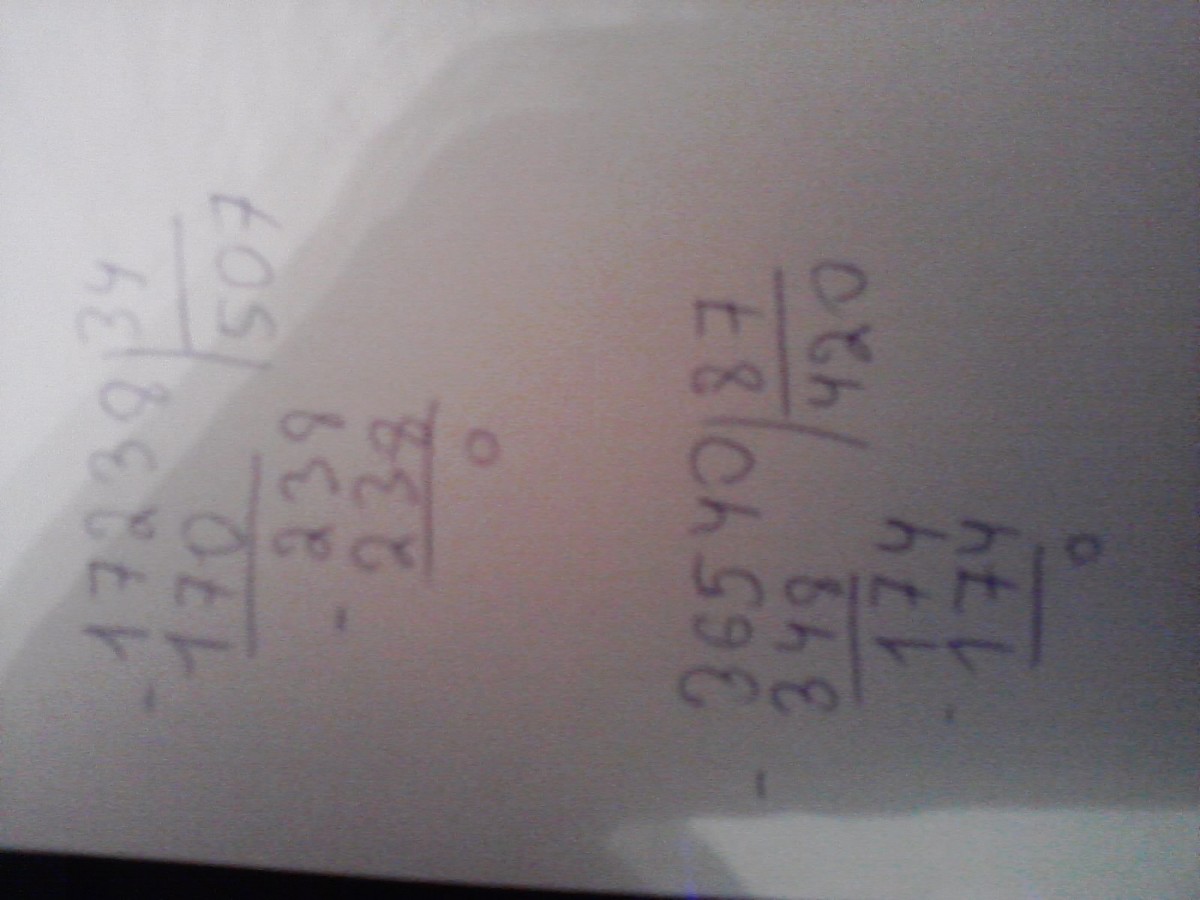 - 17238 | 34
170 | 507
- 238
238
0
- 36540 | 87
348 | 420
- 174
174
0